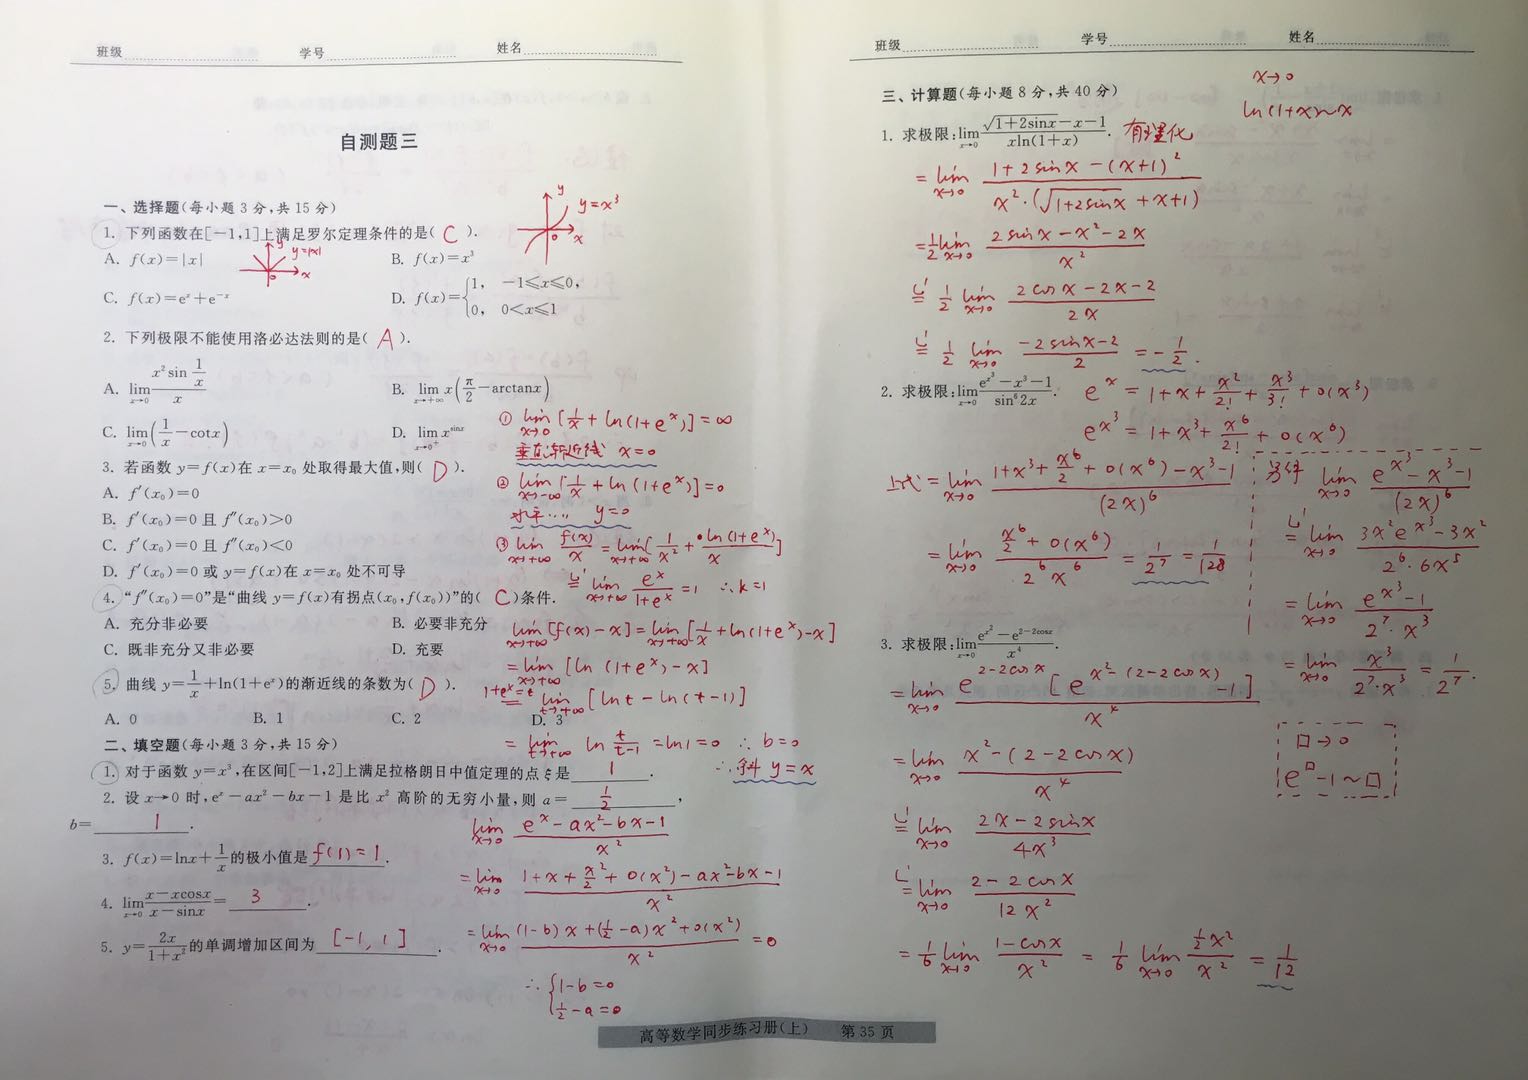 班级 学号 姓名
自测题三
一、选择题(每小题 3 分,共 15 分)
1. 下列函数在[−1,1]上满足罗尔定理条件的是( C ).
y=x³
A. f(x)=|x|
y=|x|
B. f(x)=x³
C. f(x)=eˣ+e⁻ˣ
D. f(x)={1, −1≤x≤0,
0, 0<x≤1
2. 下列极限不能使用洛必达法则的是( A ).
A. lim(x→0) (x² sin 1/x)/x
B. lim(x→+∞) x(π/2−arctanx)
C. lim(x→0) (1/x−cotx)
D. lim(x→0⁺) x^sinx
3. 若函数 y=f(x)在 x=x₀ 处取得最大值,则( D ).
A. f′(x₀)=0
B. f′(x₀)=0 且 f″(x₀)>0
C. f′(x₀)=0 且 f″(x₀)<0
D. f′(x₀)=0 或 y=f(x)在 x=x₀ 处不可导
4. “f″(x₀)=0”是“曲线 y=f(x)有拐点(x₀,f(x₀))”的( C )条件.
A. 充分非必要
B. 必要非充分
C. 既非充分又非必要
D. 充要
5. 曲线 y=1/x+ln(1+eˣ)的渐近线的条数为( D ).
A. 0 B. 1 C. 2 D. 3
① lim(x→0) [1/x+ln(1+eˣ)]=∞
垂直渐近线 x=0
② lim(x→−∞) [1/x+ln(1+eˣ)]=0
水平…. y=0
③ lim(x→+∞) f(x)/x = lim(x→+∞) [1/x²+ln(1+eˣ)/x]
L' = lim(x→+∞) eˣ/(1+eˣ)=1 ∴k=1
lim(x→+∞) [f(x)−x]=lim(x→+∞) [1/x+ln(1+eˣ)−x]
=lim(x→+∞) [ln(1+eˣ)−x]
1+eˣ=t = lim(t→+∞) [lnt−ln(t−1)]
=lim(t→+∞) ln t/(t−1) =ln1=0 ∴b=0
∴斜 y=x
二、填空题(每小题 3 分,共 15 分)
1. 对于函数 y=x³,在区间[−1,2]上满足拉格朗日中值定理的点 ξ 是 1 .
2. 设 x→0 时,eˣ−ax²−bx−1 是比 x² 高阶的无穷小量,则 a= 1/2 ,
b= 1 .
lim(x→0) (eˣ−ax²−bx−1)/x²
=lim(x→0) (1+x+x²/2+o(x²)−ax²−bx−1)/x²
=lim(x→0) ((1−b)x+(1/2−a)x²+o(x²))/x² =0
∴{1−b=0
1/2−a=0
3. f(x)=lnx+1/x的极小值是 f(1)=1 .
4. lim(x→0) (x−xcosx)/(x−sinx)= 3 .
5. y=2x/(1+x²)的单调增加区间为 [−1,1] .
高等数学同步练习册(上) 第 35 页
班级 学号 姓名
三、计算题(每小题 8 分,共 40 分)
x→0
ln(1+x)~x
1. 求极限:lim(x→0) (√(1+2sinx)−x−1)/(xln(1+x)). 有理化
=lim(x→0) (1+2sinx−(x+1)²)/(x²·(√(1+2sinx)+x+1))
=1/2 lim(x→0) (2sinx−x²−2x)/x²
L' = 1/2 lim(x→0) (2cosx−2x−2)/(2x)
L' = 1/2 lim(x→0) (−2sinx−2)/2 =−1/2.
2. 求极限:lim(x→0) (e^x³−x³−1)/sin⁶2x.
eˣ=1+x+x²/2!+x³/3!+o(x³)
e^x³=1+x³+x⁶/2!+o(x⁶)
上式=lim(x→0) (1+x³+x⁶/2+o(x⁶)−x³−1)/(2x)⁶
=lim(x→0) (x⁶/2+o(x⁶))/(2⁶x⁶) =1/2⁷=1/128
另解 lim(x→0) (e^x³−x³−1)/(2x)⁶
L' = lim(x→0) (3x²e^x³−3x²)/(2⁶·6x⁵)
=lim(x→0) (e^x³−1)/(2⁷·x³)
=lim(x→0) x³/(2⁷·x³)=1/2⁷.
3. 求极限:lim(x→0) (e^x²−e^(2−2cosx))/x⁴.
=lim(x→0) e^(2−2cosx)[e^(x²−(2−2cosx))−1]/x⁴
=lim(x→0) (x²−(2−2cosx))/x⁴
□→0
e^□−1~□
L' = lim(x→0) (2x−2sinx)/(4x³)
L' = lim(x→0) (2−2cosx)/(12x²)
=1/6 lim(x→0) (1−cosx)/x² = 1/6 lim(x→0) (1/2 x²)/x² = 1/12